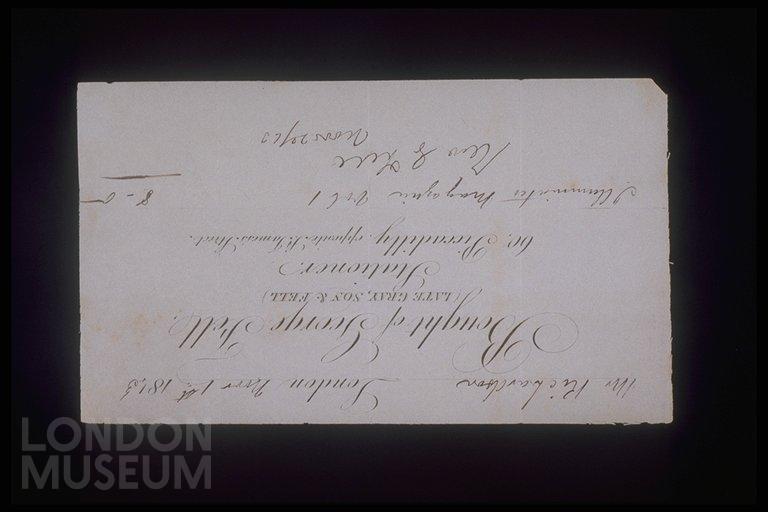 Mr Richardson London Novr 1st 1843
Bought of George Fell,
(LATE GRAY, SON & FELL)
Stationer,
60, Piccadilly, opposite St. James's Street.
Illuminated Magazine Vol 1 8 - 0
G Fell
LONDON
MUSEUM